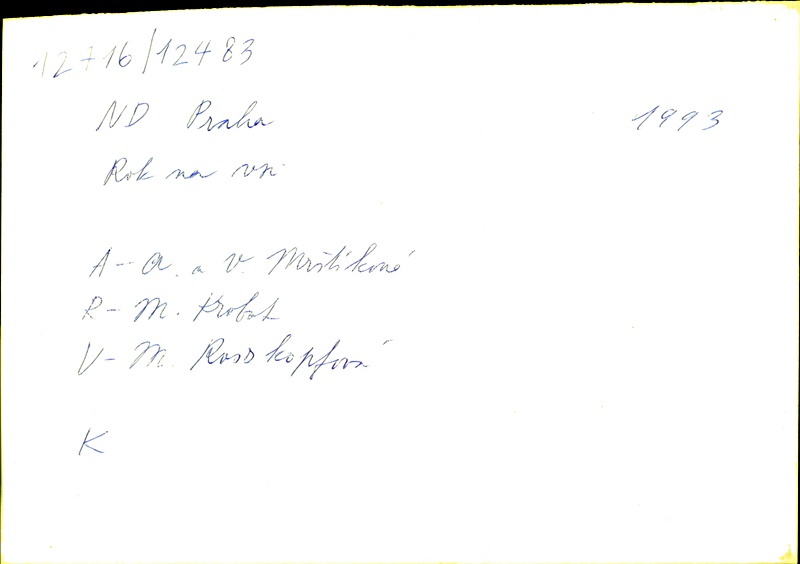 12716/12483
ND Praha 1993
Rok na vsi
A - A. a V. Mrštíkové
R - M. Krobot
V - M. Rosskopfová
K